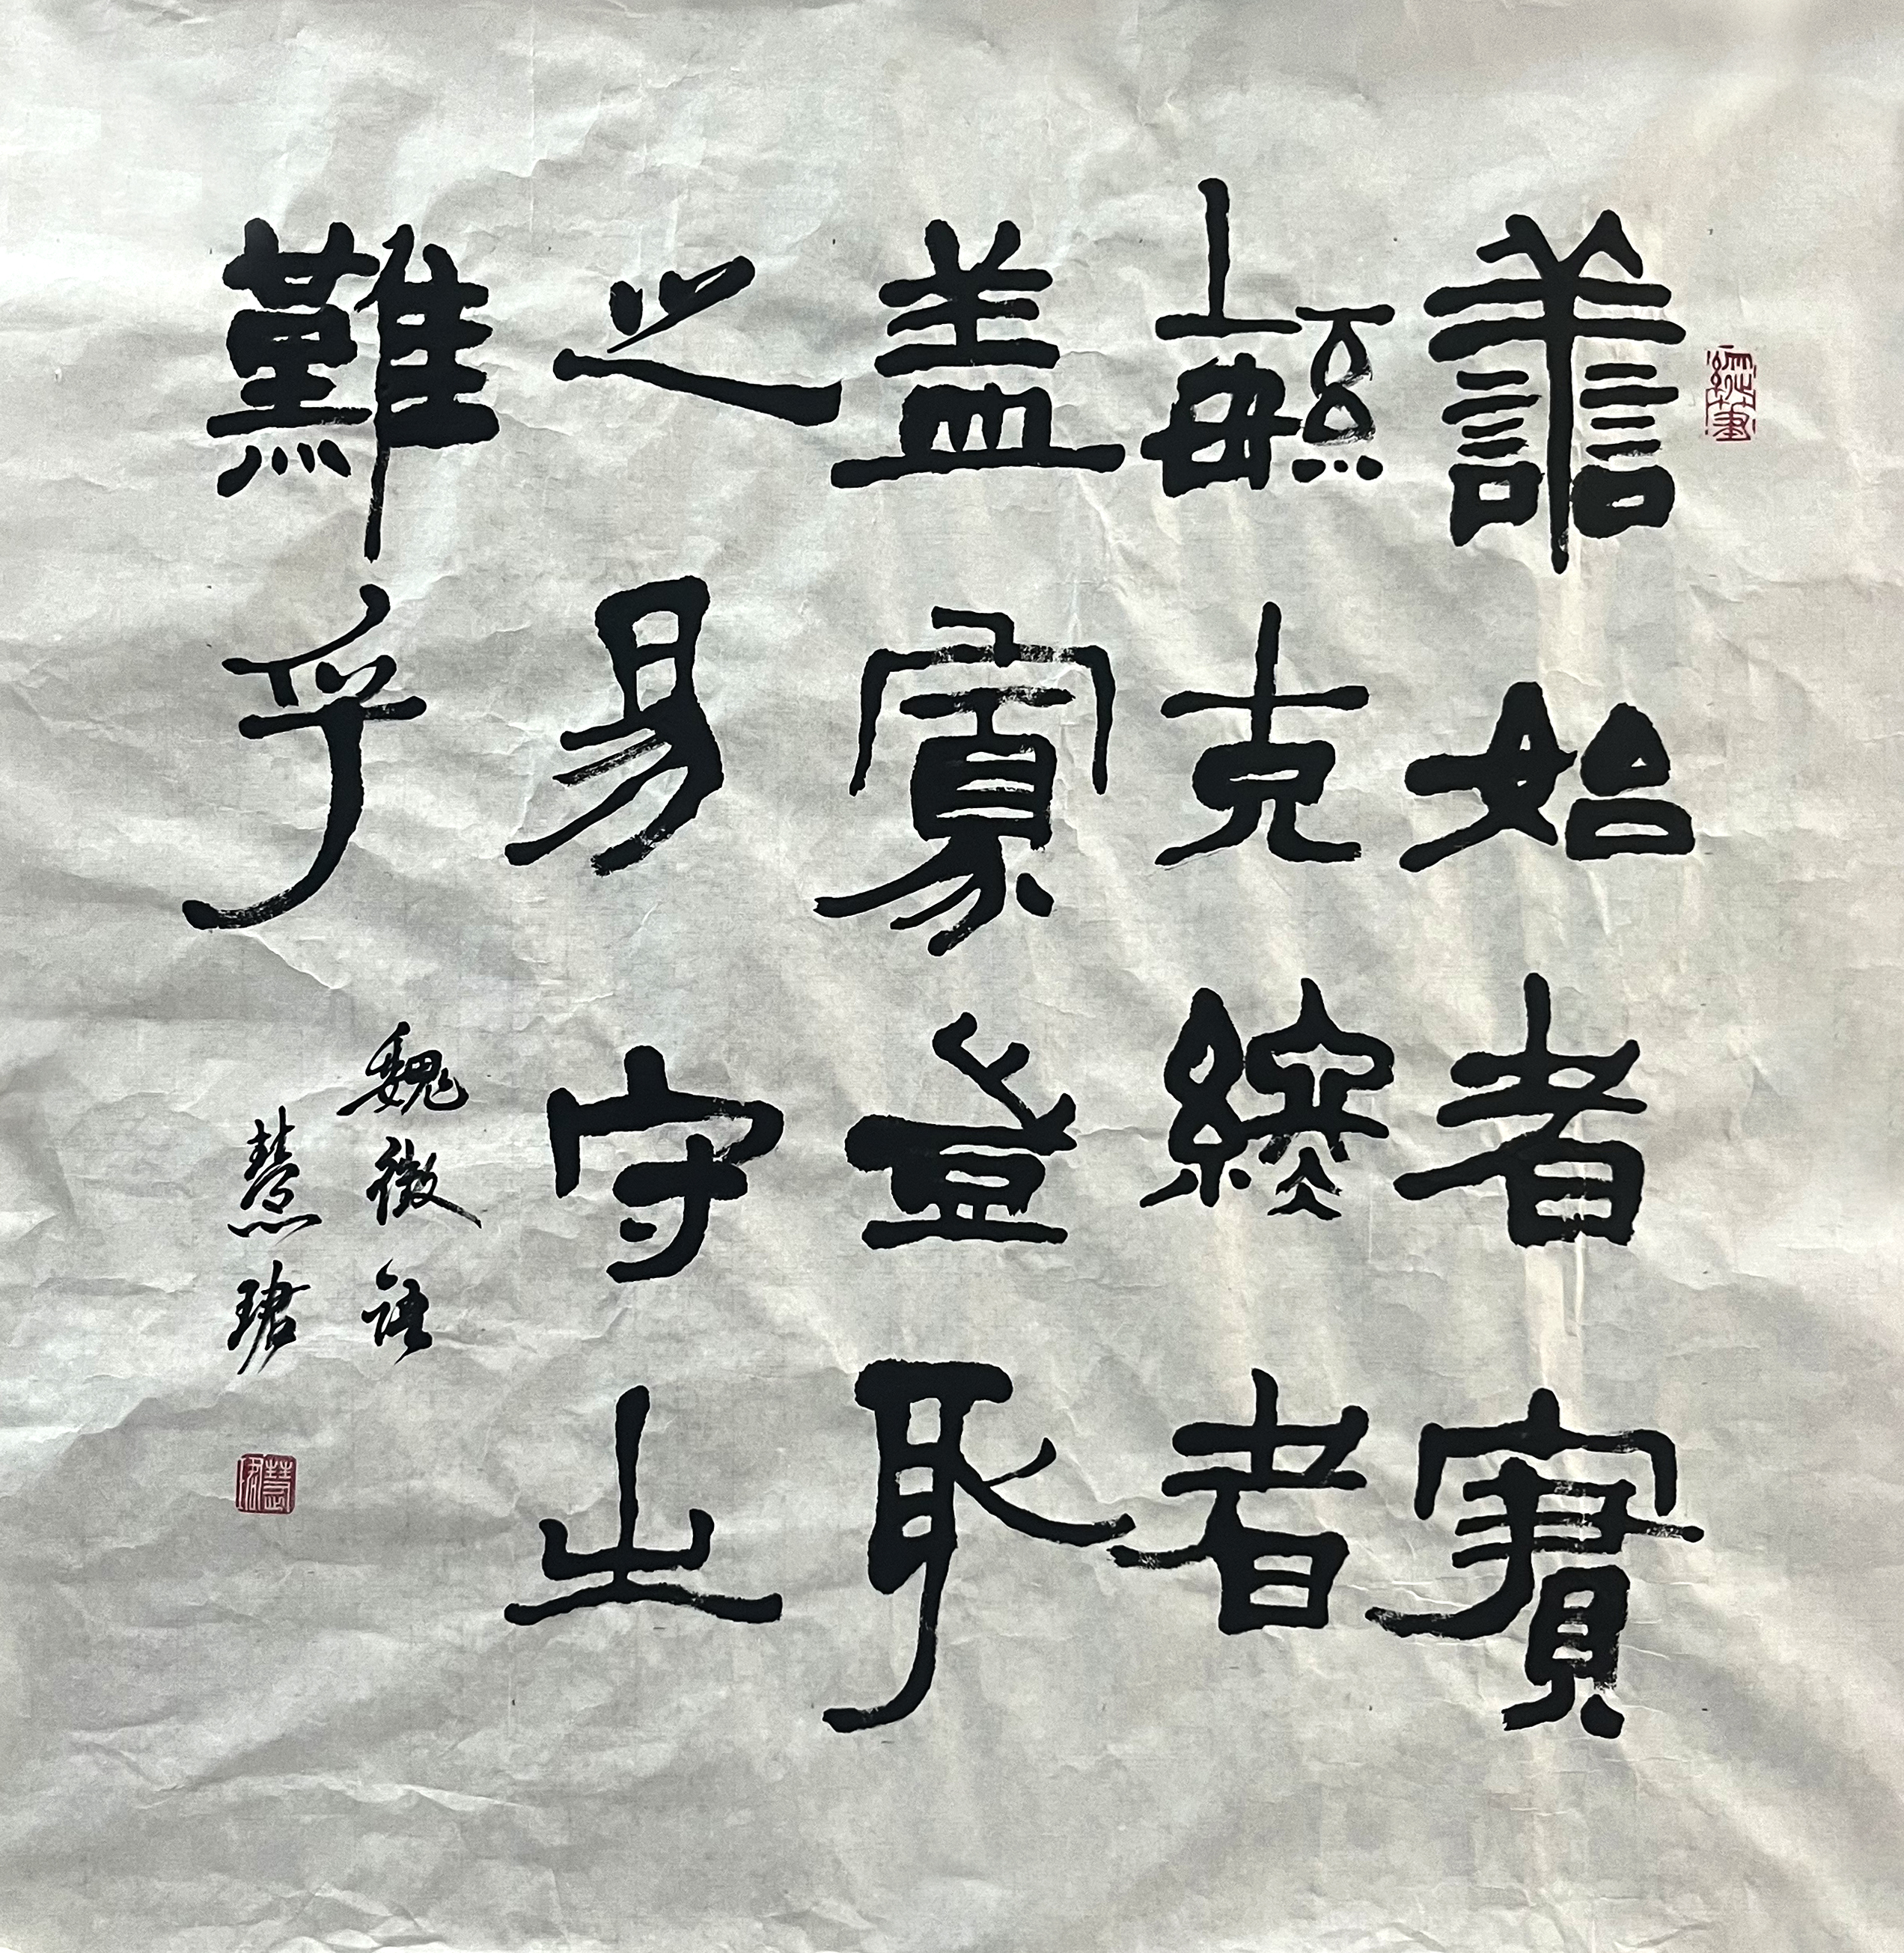 善始者實
繁克終者
蓋寡豈取
之易守之
難乎
魏徵語
慧珺
慧珺